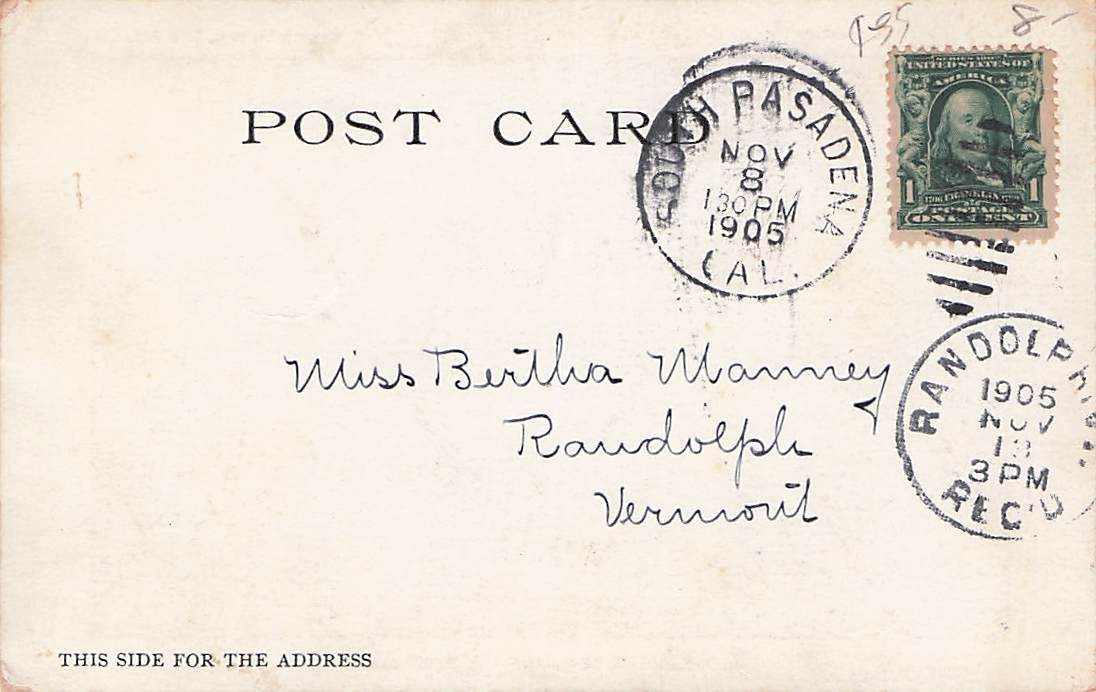 8-
POST CARD
SOUTH PASADENA
NOV
8
130 PM
1905
CAL.
UNITED STATES OF
AMERICA
1 1
POSTAGE
ONE CENT
Miss Bertha Manney
Randolph
Vermont
RANDOLPH
1905
NOV
13
3 PM
REC'D
THIS SIDE FOR THE ADDRESS